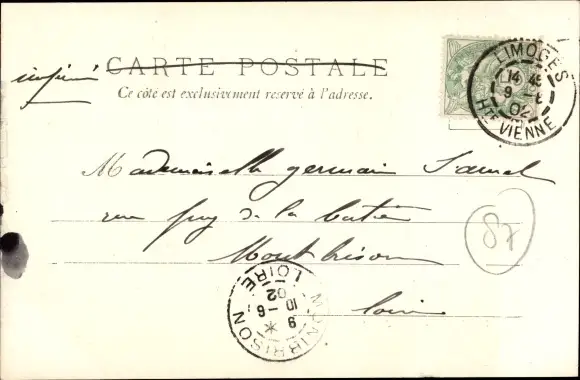 imprimé
CARTE POSTALE
Ce côté est exclusivement reservé à l'adresse.
LIMOGES
14 45
9 - 6
02
HTE VIENNE
Mademoiselle germain
rue puy de la
Montbrison
Loire
87
MONTBRISON
9 - 6
10
02
LOIRE